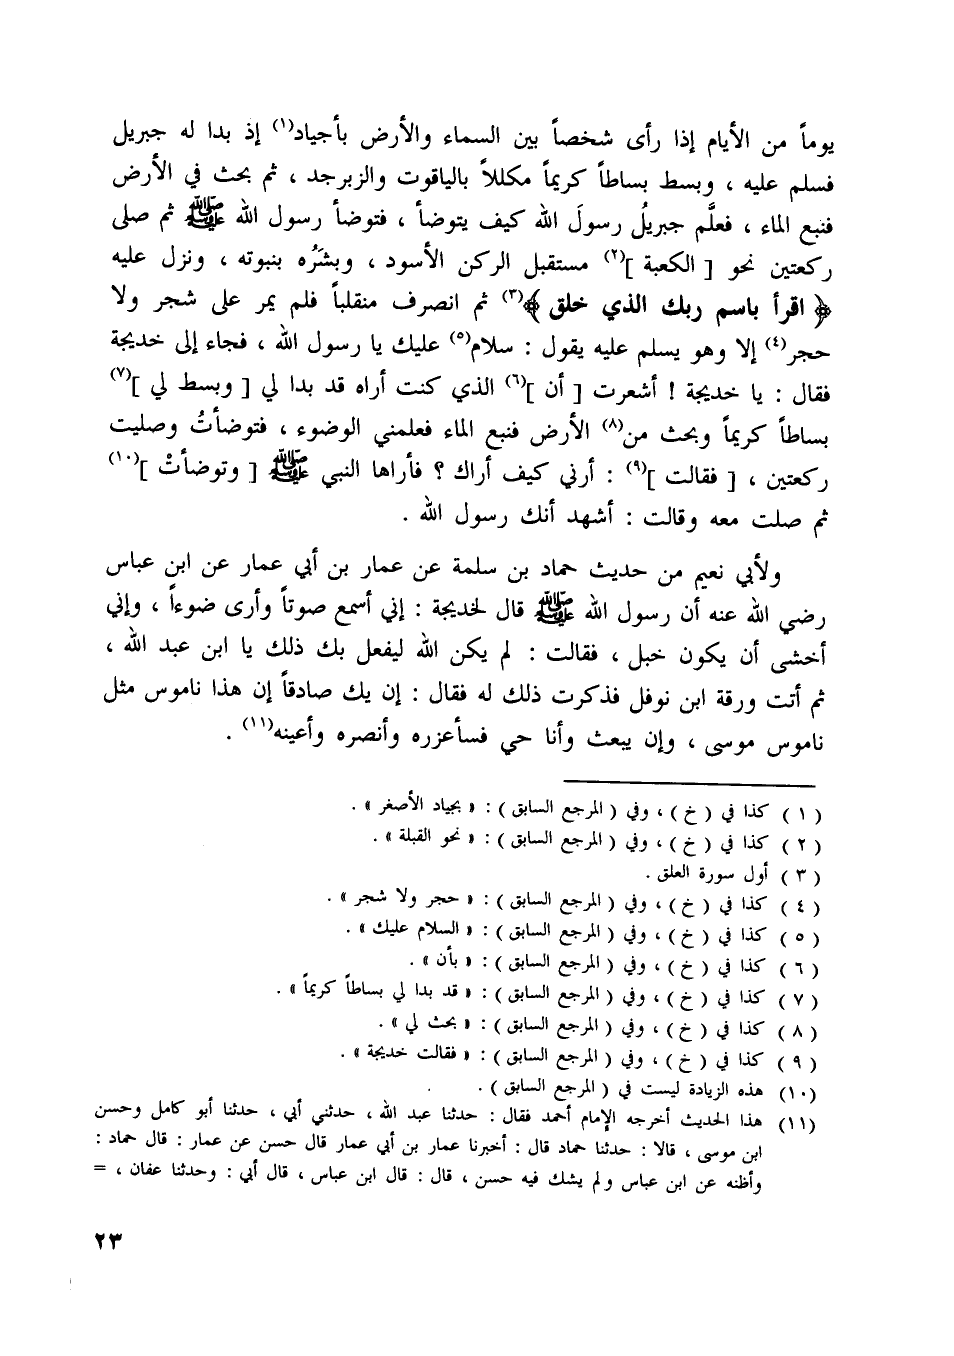 يوماً من الأيام إذا رأى شخصاً بين السماء والأرض بأجياد(١) إذ بدا له جبريل
فسلم عليه ، وبسط بساطاً كريماً مكللاً بالياقوت والزبرجد ، ثم بحث في الأرض
فنبع الماء ، فعلَّم جبريلُ رسولَ الله كيف يتوضأ ، فتوضأ رسول الله ﷺ ثم صلى
ركعتين نحو [ الكعبة ](٢) مستقبل الركن الأسود ، وبشَرُه بنبوته ، ونزل عليه
﴿ اقرأ باسم ربك الذي خلق ﴾(٣) ثم انصرف منقلباً فلم يمر على شجر ولا
حجر(٤) إلا وهو يسلم عليه يقول : سلام(٥) عليك يا رسول الله ، فجاء إلى خديجة
فقال : يا خديجة ! أشعرت [ أن ](٦) الذي كنت أراه قد بدا لي [ وبسط لي ](٧)
بساطاً كريماً وبحث من(٨) الأرض فنبع الماء فعلمني الوضوء ، فتوضأتُ وصليت
ركعتين ، [ فقالت ](٩) : أرني كيف أراك ؟ فأراها النبي ﷺ [ وتوضأتْ ](١٠)
ثم صلت معه وقالت : أشهد أنك رسول الله .
ولأبي نعيم من حديث حماد بن سلمة عن عمار بن أبي عمار عن ابن عباس
رضي الله عنه أن رسول الله ﷺ قال لخديجة : إني أسمع صوتاً وأرى ضوءاً ، وإني
أخشى أن يكون خبل ، فقالت : لم يكن الله ليفعل بك ذلك يا ابن عبد الله ،
ثم أتت ورقة ابن نوفل فذكرت ذلك له فقال : إن يك صادقاً إن هذا ناموس مثل
ناموس موسى ، وإن يبعث وأنا حي فسأعزره وأنصره وأعينه(١١) .
( ١ ) كذا في ( خ ) ، وفي ( المرجع السابق ) : « بجياد الأصغر » .
( ٢ ) كذا في ( خ ) ، وفي ( المرجع السابق ) : « نحو القبلة » .
( ٣ ) أول سورة العلق .
( ٤ ) كذا في ( خ ) ، وفي ( المرجع السابق ) : « حجر ولا شجر » .
( ٥ ) كذا في ( خ ) ، وفي ( المرجع السابق ) : « السلام عليك » .
( ٦ ) كذا في ( خ ) ، وفي ( المرجع السابق ) : « بأن » .
( ٧ ) كذا في ( خ ) ، وفي ( المرجع السابق ) : « قد بدا لي بساطاً كريماً » .
( ٨ ) كذا في ( خ ) ، وفي ( المرجع السابق ) : « بحث لي » .
( ٩ ) كذا في ( خ ) ، وفي ( المرجع السابق ) : « فقالت خديجة » .
(١٠) هذه الزيادة ليست في ( المرجع السابق ) .
(١١) هذا الحديث أخرجه الإمام أحمد فقال : حدثنا عبد الله ، حدثني أبي ، حدثنا أبو كامل وحسن
ابن موسى ، قالا : حدثنا حماد قال : أخبرنا عمار بن أبي عمار قال حسن عن عمار : قال حماد :
وأظنه عن ابن عباس ولم يشك فيه حسن ، قال : قال ابن عباس ، قال أبي : وحدثنا عفان ، =
٢٣